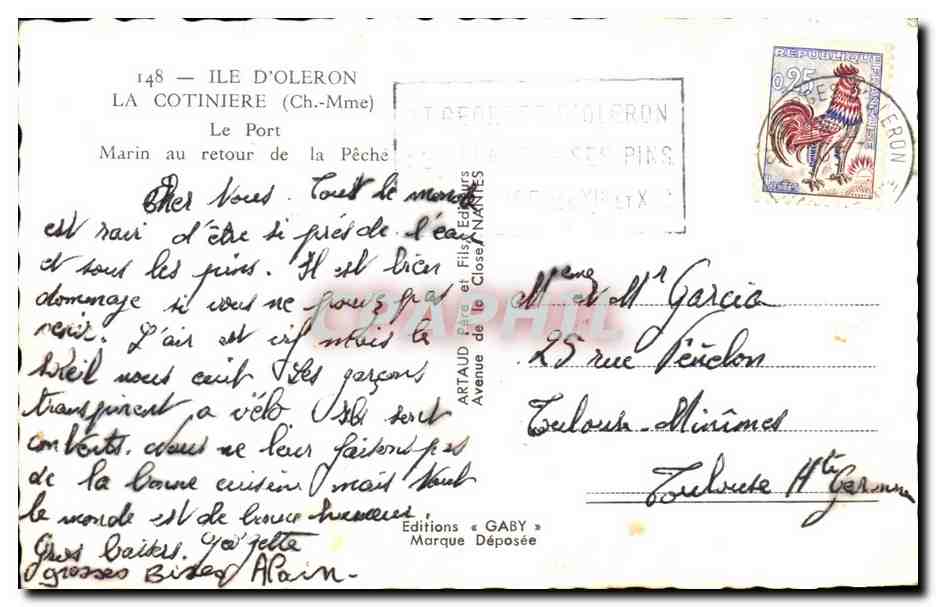 148 — ILE D'OLERON
LA COTINIERE (Ch.-Mme)
Le Port
Marin au retour de la Pêche
Cher Vous. Tout le monde
est ravi d'être si près de l'eau
et sous les pins. Il est bien
dommage si vous ne pouvez pas
venir. L'air est vif mais le
soleil nous cuit. Les garçons
transpirent a vélo. Ils sont
contents. Nous ne leur faisons pas
de la bonne cuisine mais tout
le monde est de bonne humeur.
Gros baisers. Yo zette
grosses Bises Alain -
ARTAUD Père et Fils, Editeurs
Avenue de la Close, NANTES
Editions « GABY »
Marque Déposée
REPUBLIQUE FRANÇAISE
0,25
D'OLERON
SES PINS
OLERON
CPAPHIL
Mme et Mr Garcia
25 rue Fénelon
Toulouse-Minimes
Toulouse Hte Garonne